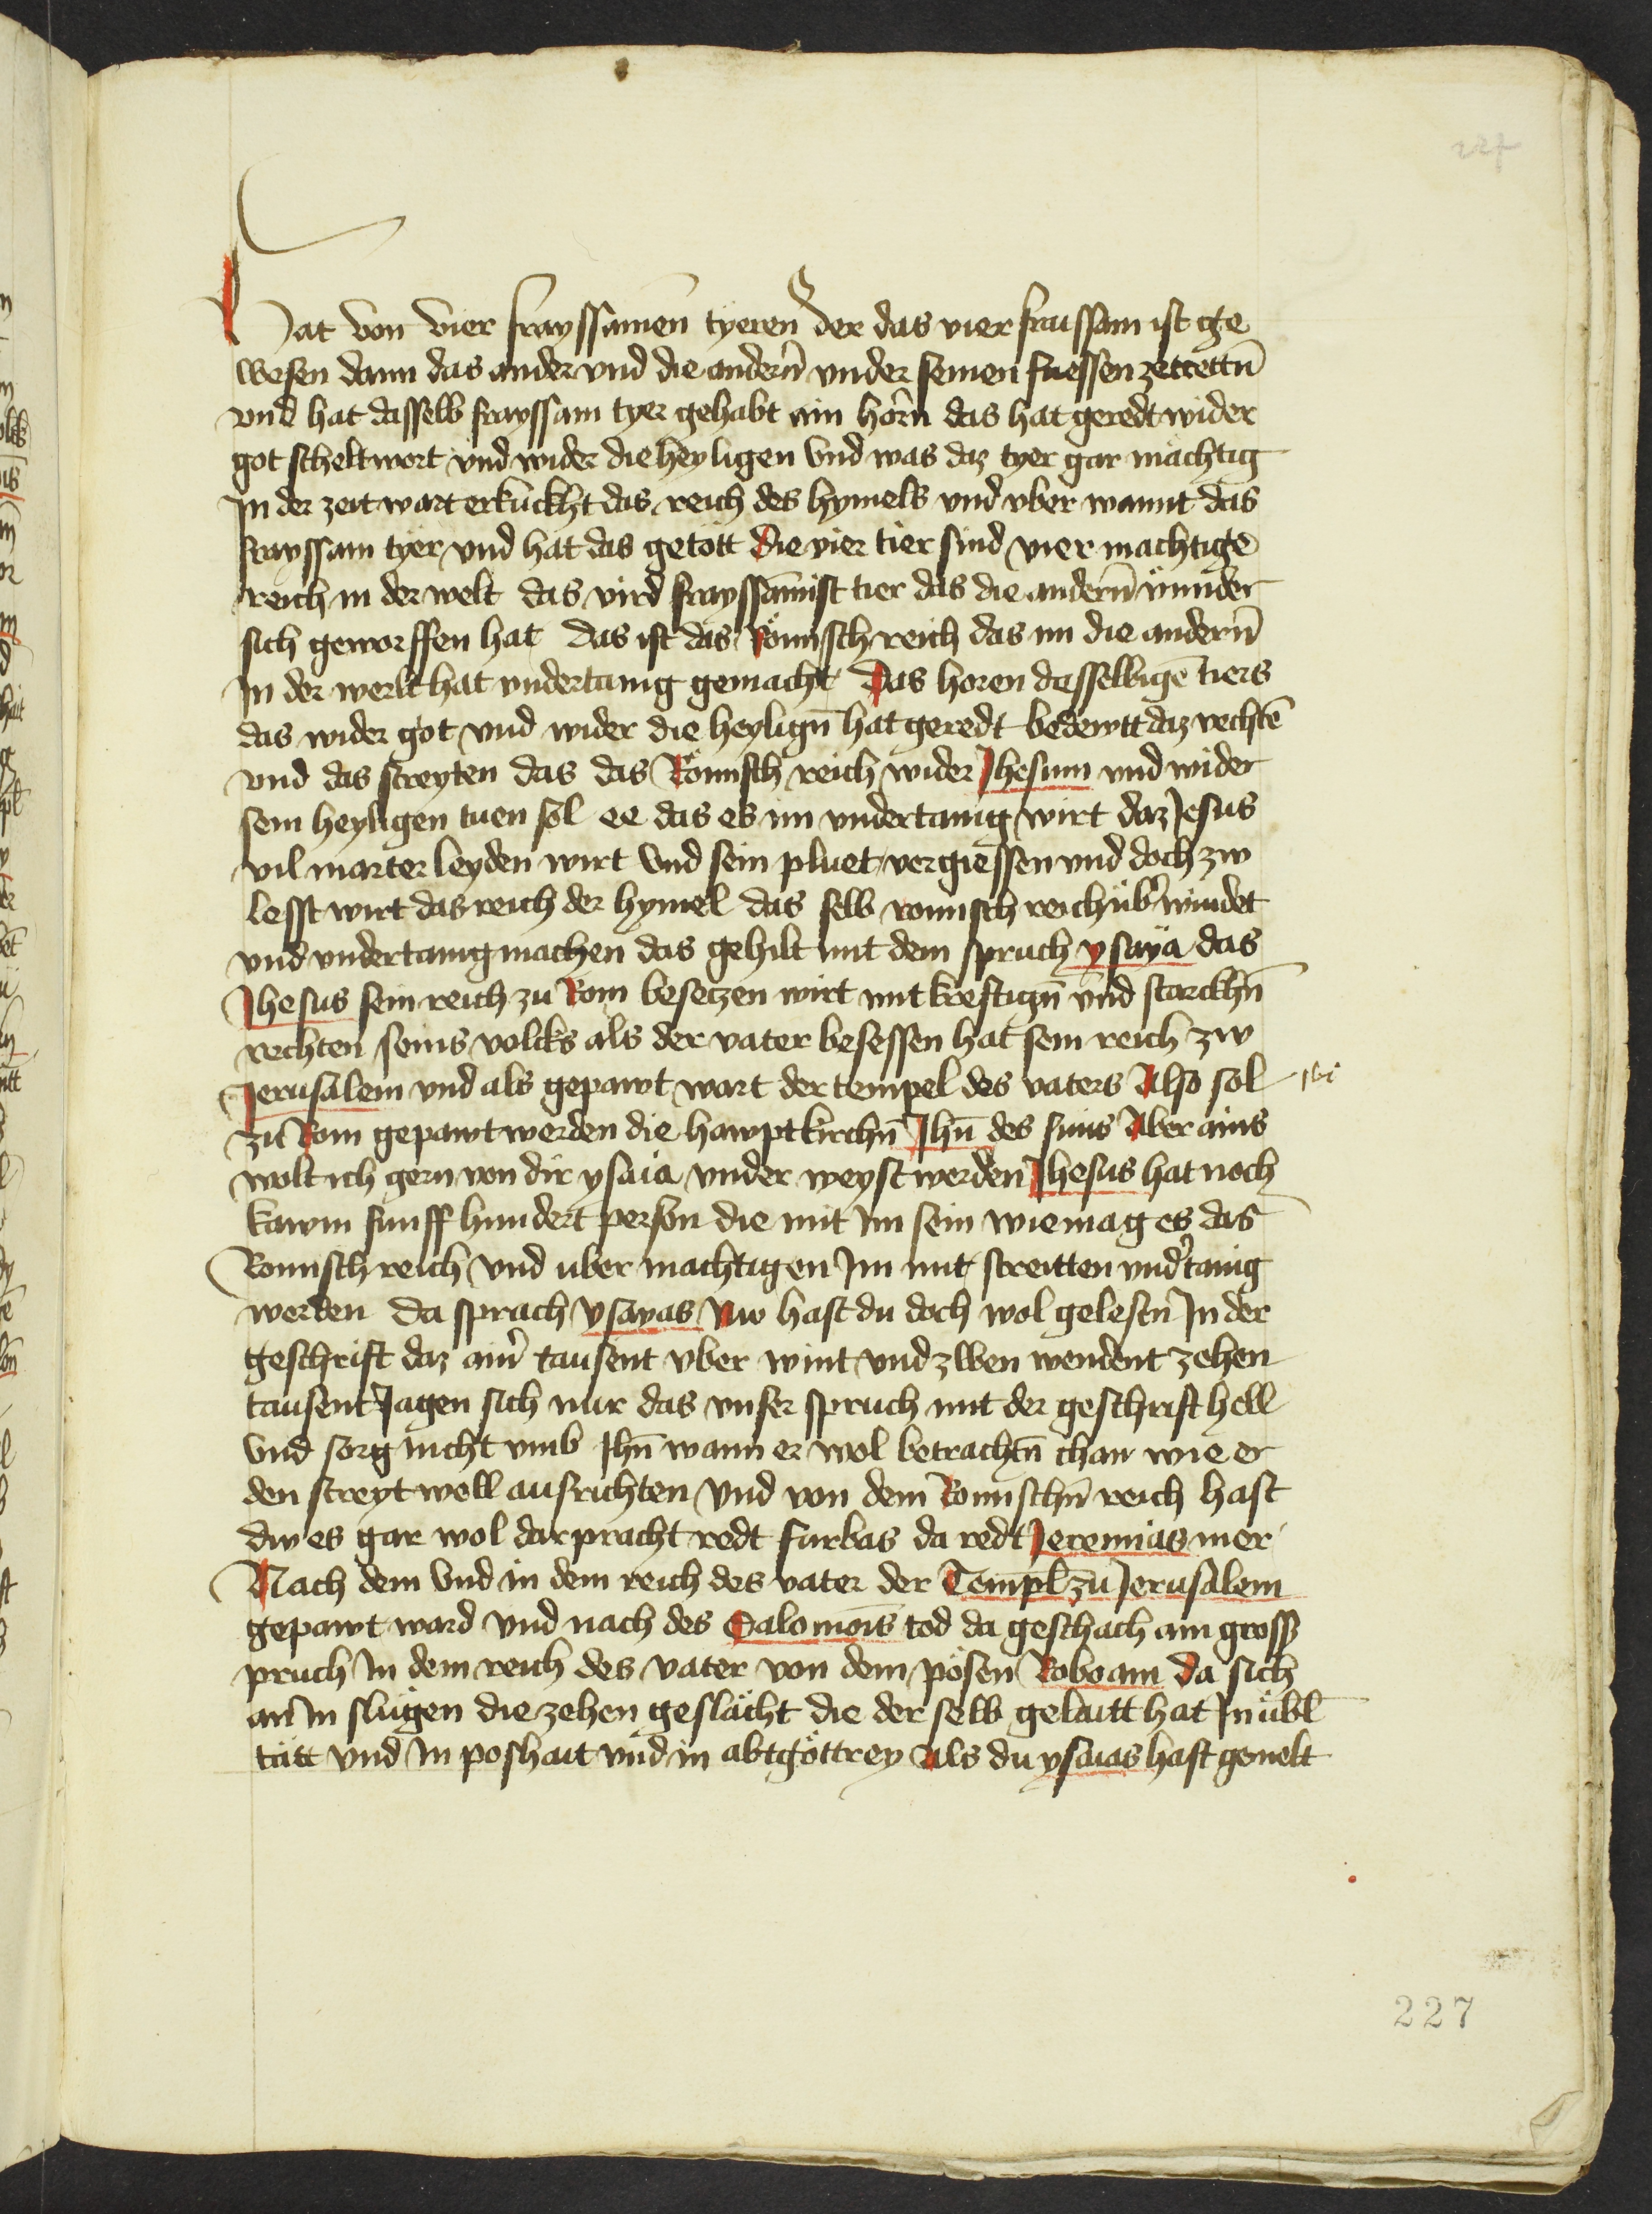 227
Hat von vier frayssamen tyeren Der das vier fraissam ist ge
wesen dann das ander vnd die andern̄ vnder seinen fuessen zetrettn̄
vnd hat dasselb frayssam tyer gehabt ain horn das hat geredt wider
got scheltwort vnd wider die heyligen Vnd was daz tyer gar mächtig
In der zeit wart erkuckht das reich des hymels vnd vber wannt das
frayssam tyer vnd hat das getött Die vier tier sind vier machtige
reich in der welt das vird frayssamist tier das die andern̄ vnnder
sich geworffen hat das ist das Römisch reich das im die andern̄
In der werlt hat vndertanig gemacht Das horen desselbigē tiers
das wider got vnd wider die heylign̄ hat geredt bedewtt daz vechtē
vnd das streyten das das Römisch reich wider Jhesum vnd wider
sein heyligen tuen sol ee das es im vndertanig wirt daz Jesus
vil marter leyden wirt Vnd sein pluet vergiessen vnd doch zw
lesst wirt das reich der hymel das selb romisch reich übˀwindet
vnd vndertanig machen das gehilt mit dem spruch ysaya das
Jhesus sein reich zu Rom besetzen wirt mit kreftign̄ vnd starckhn̄
vechten seins volcks als der vater besessen hat sein reich zw
Jerusalem vnd als gepawt wart der tempel des vaters Also sol
zu Rom gepawt werden die hawptkirchn̄ Jhū des suns Aber ains
wolt ich gern von dir ysaia vnder weyst werden Jhesus hat noch
kawm funff hundert person die mit im sein wie mag es das
Romisch reich Vnd uber machtigen Im mit streitten vndˀtanig
werden Da sprach ysayas Nw hast du doch wol gelesen In der
geschrift daz ainˀ tausent vber wint vnd zwen wendent zehen
tausent Jagen sich nur das vnser spruch mit der geschrift hell
Vnd sorg nicht vmb Jhū wann er wol betrachtn̄ chan wie er
den streyt well ausrichten Vnd von dem Romischn̄ reich hast
dw es gar wol dar pracht redt furbas da redt Jeremias mer
Nach dem Vnd in dem reich des vater der Templ zu Jerusalem
gepawt ward Vnd nach des Salomons tod da geschach ain gross
pruch In dem reich des vater von dem pösen Roboam da sich
an in slugen die zehen geslächt die der selb gelaitt hat In übl
tätt vnd In poshait vnd in abtgöttrey Als du ysaias hast gemelt
227